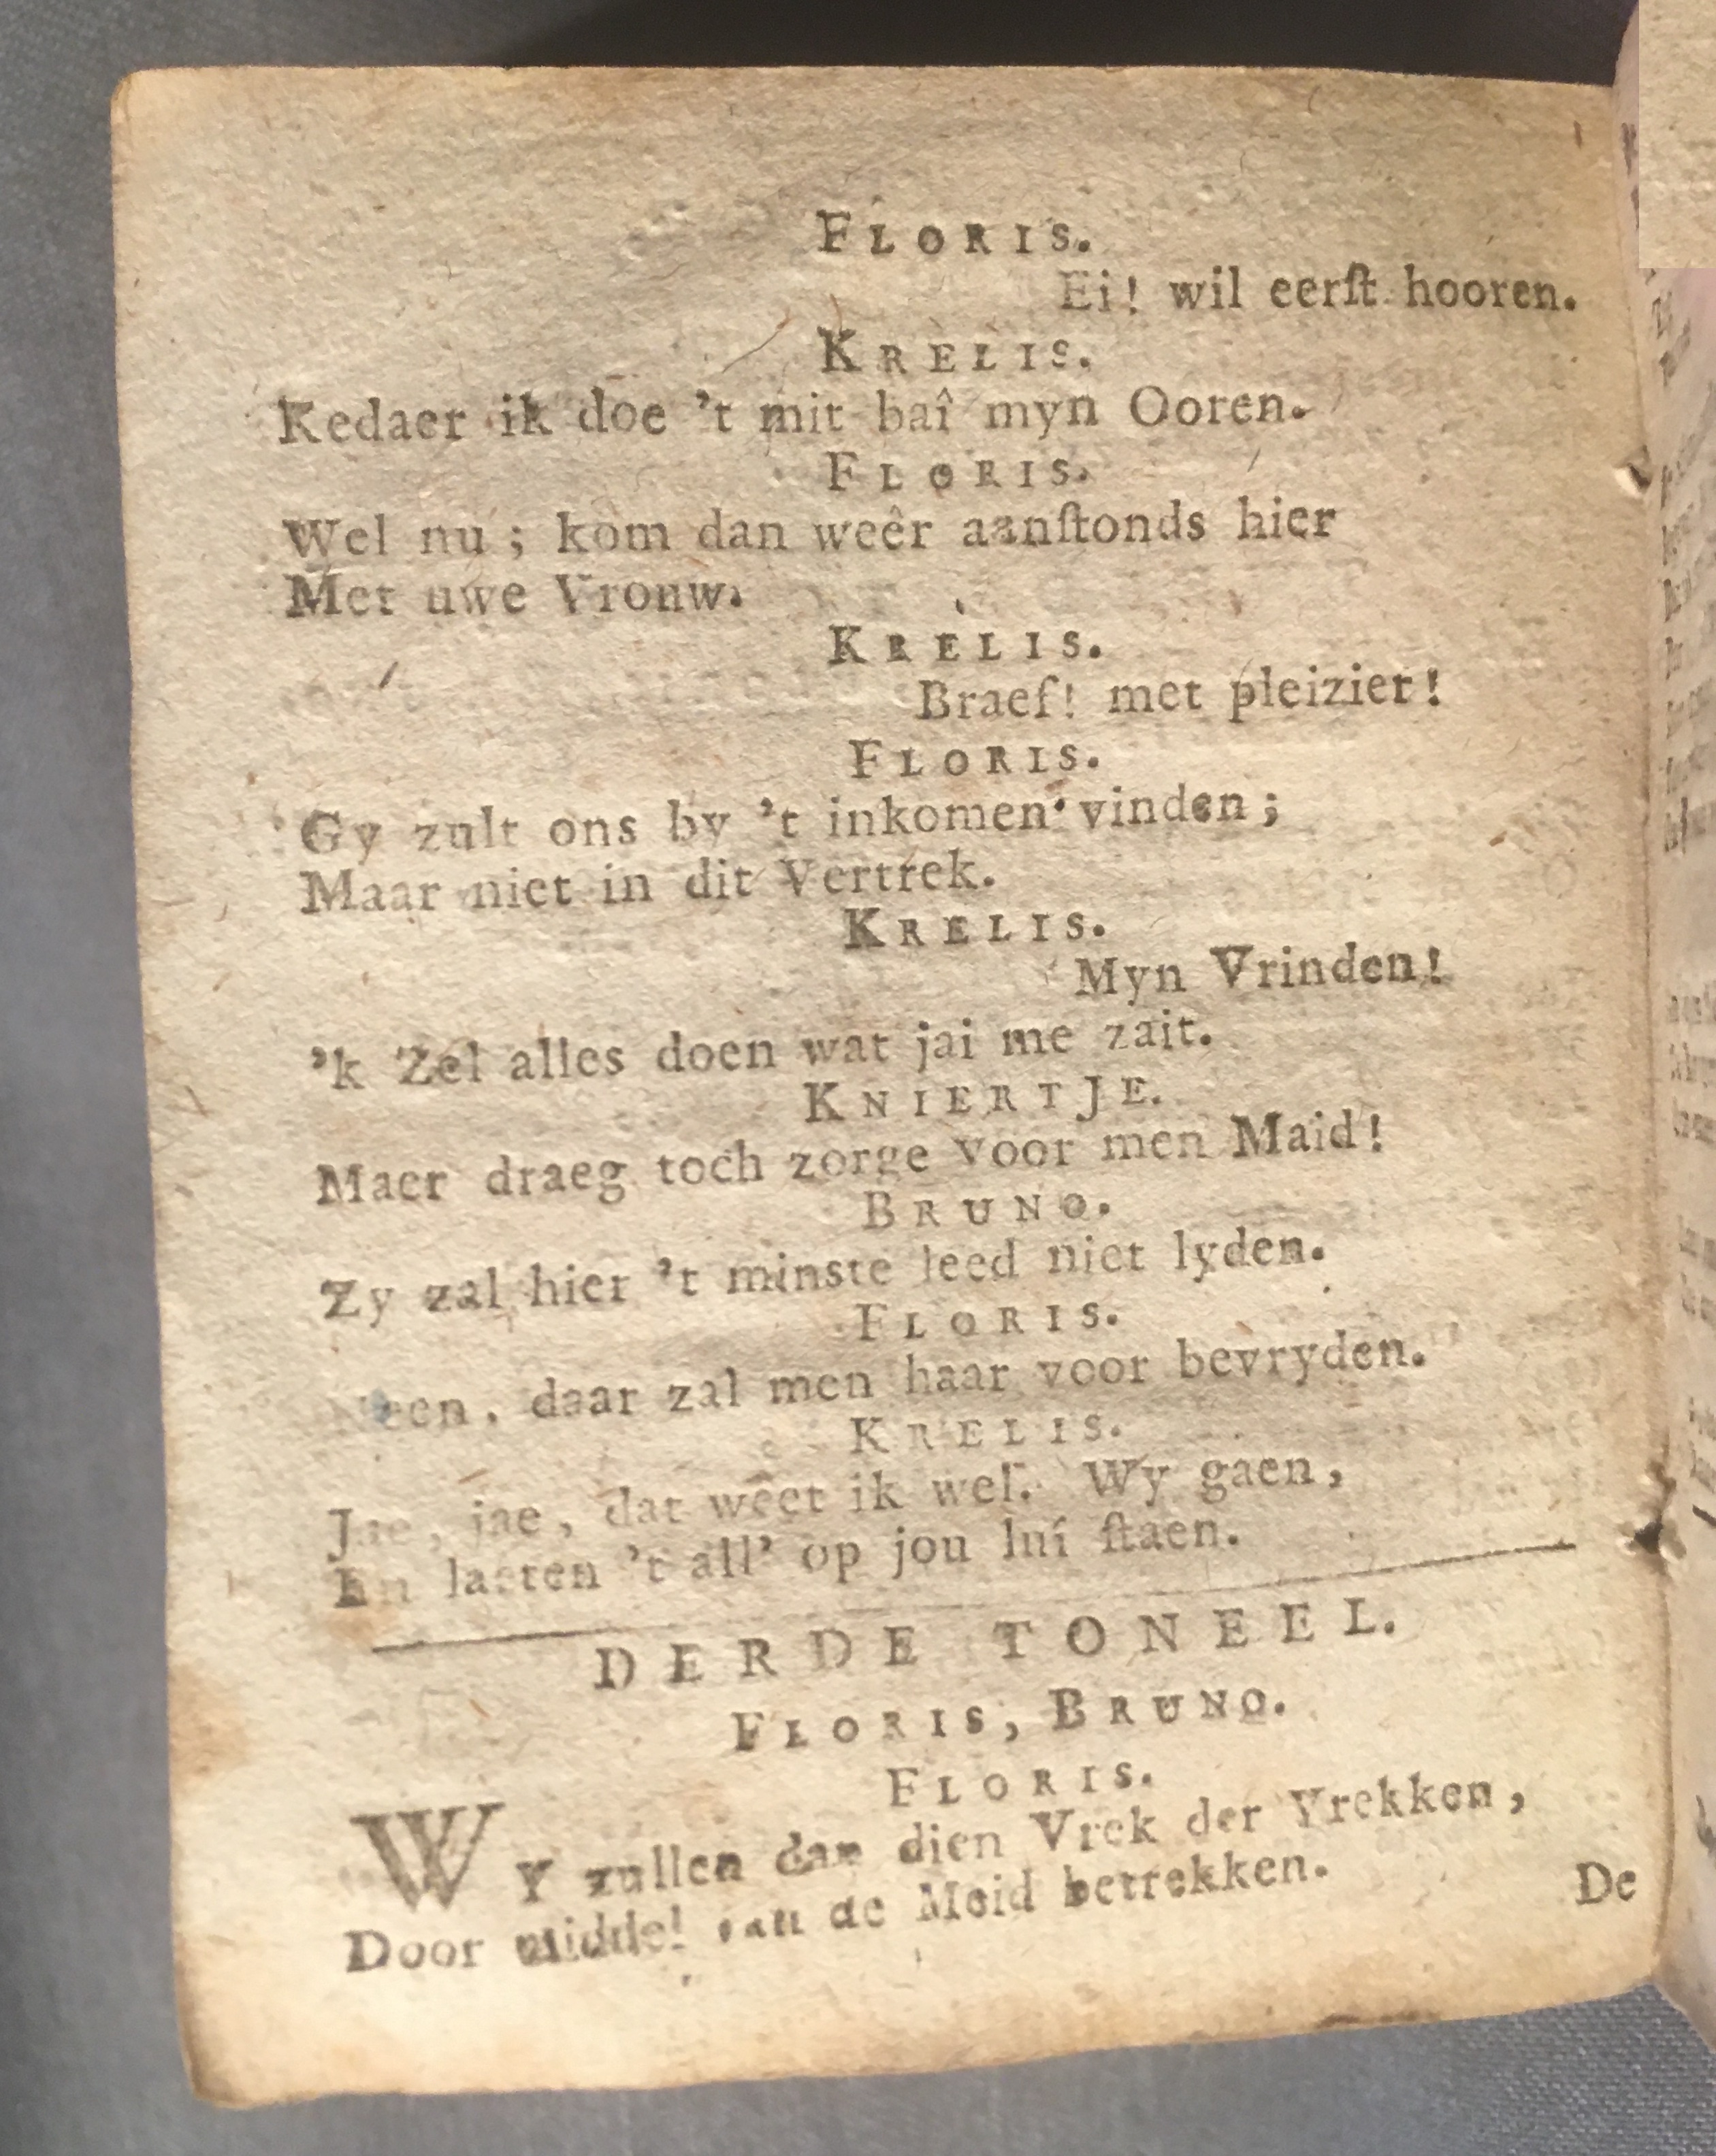 FLORIS.
Ei! wil eerſt hooren.
KRELIS.
Kedaer ik doe 't mit baî myn Ooren.
FLORIS.
Wel nu; kom dan weêr aanſtonds hier
Met uwe Vrouw.
KRELIS.
Braef! met pleizier!
FLORIS.
Gy zult ons by 't inkomen vinden;
Maar niet in dit Vertrek.
KRELIS.
Myn Vrinden!
'k Zel alles doen wat jai me zait.
KNIERTJE.
Maer draeg toch zorge voor men Maid!
BRUNO.
Zy zal hier 't minste leed niet lyden.
FLORIS.
Neen, daar zal men haar voor bevryden.
KRELIS.
Jae, jae, dat weet ik wel. Wy gaen,
En laeten 't all' op jou luî ſtaen.
DERDE TONEEL.
FLORIS, BRUNO.
FLORIS.
WY zullen dan dien Vrek der Vrekken,
Door middel van de Meid betrekken.
De